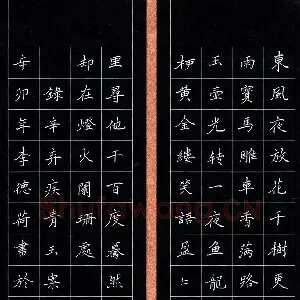 東風夜放花千樹更
雨寶馬雕車香滿路
玉壺光转一夜鱼龍
柳黄金縷笑語盈〻
里尋他千百度驀然
却在燈火闌珊處
錄辛弃疾青玉案
卯年李德荷書於